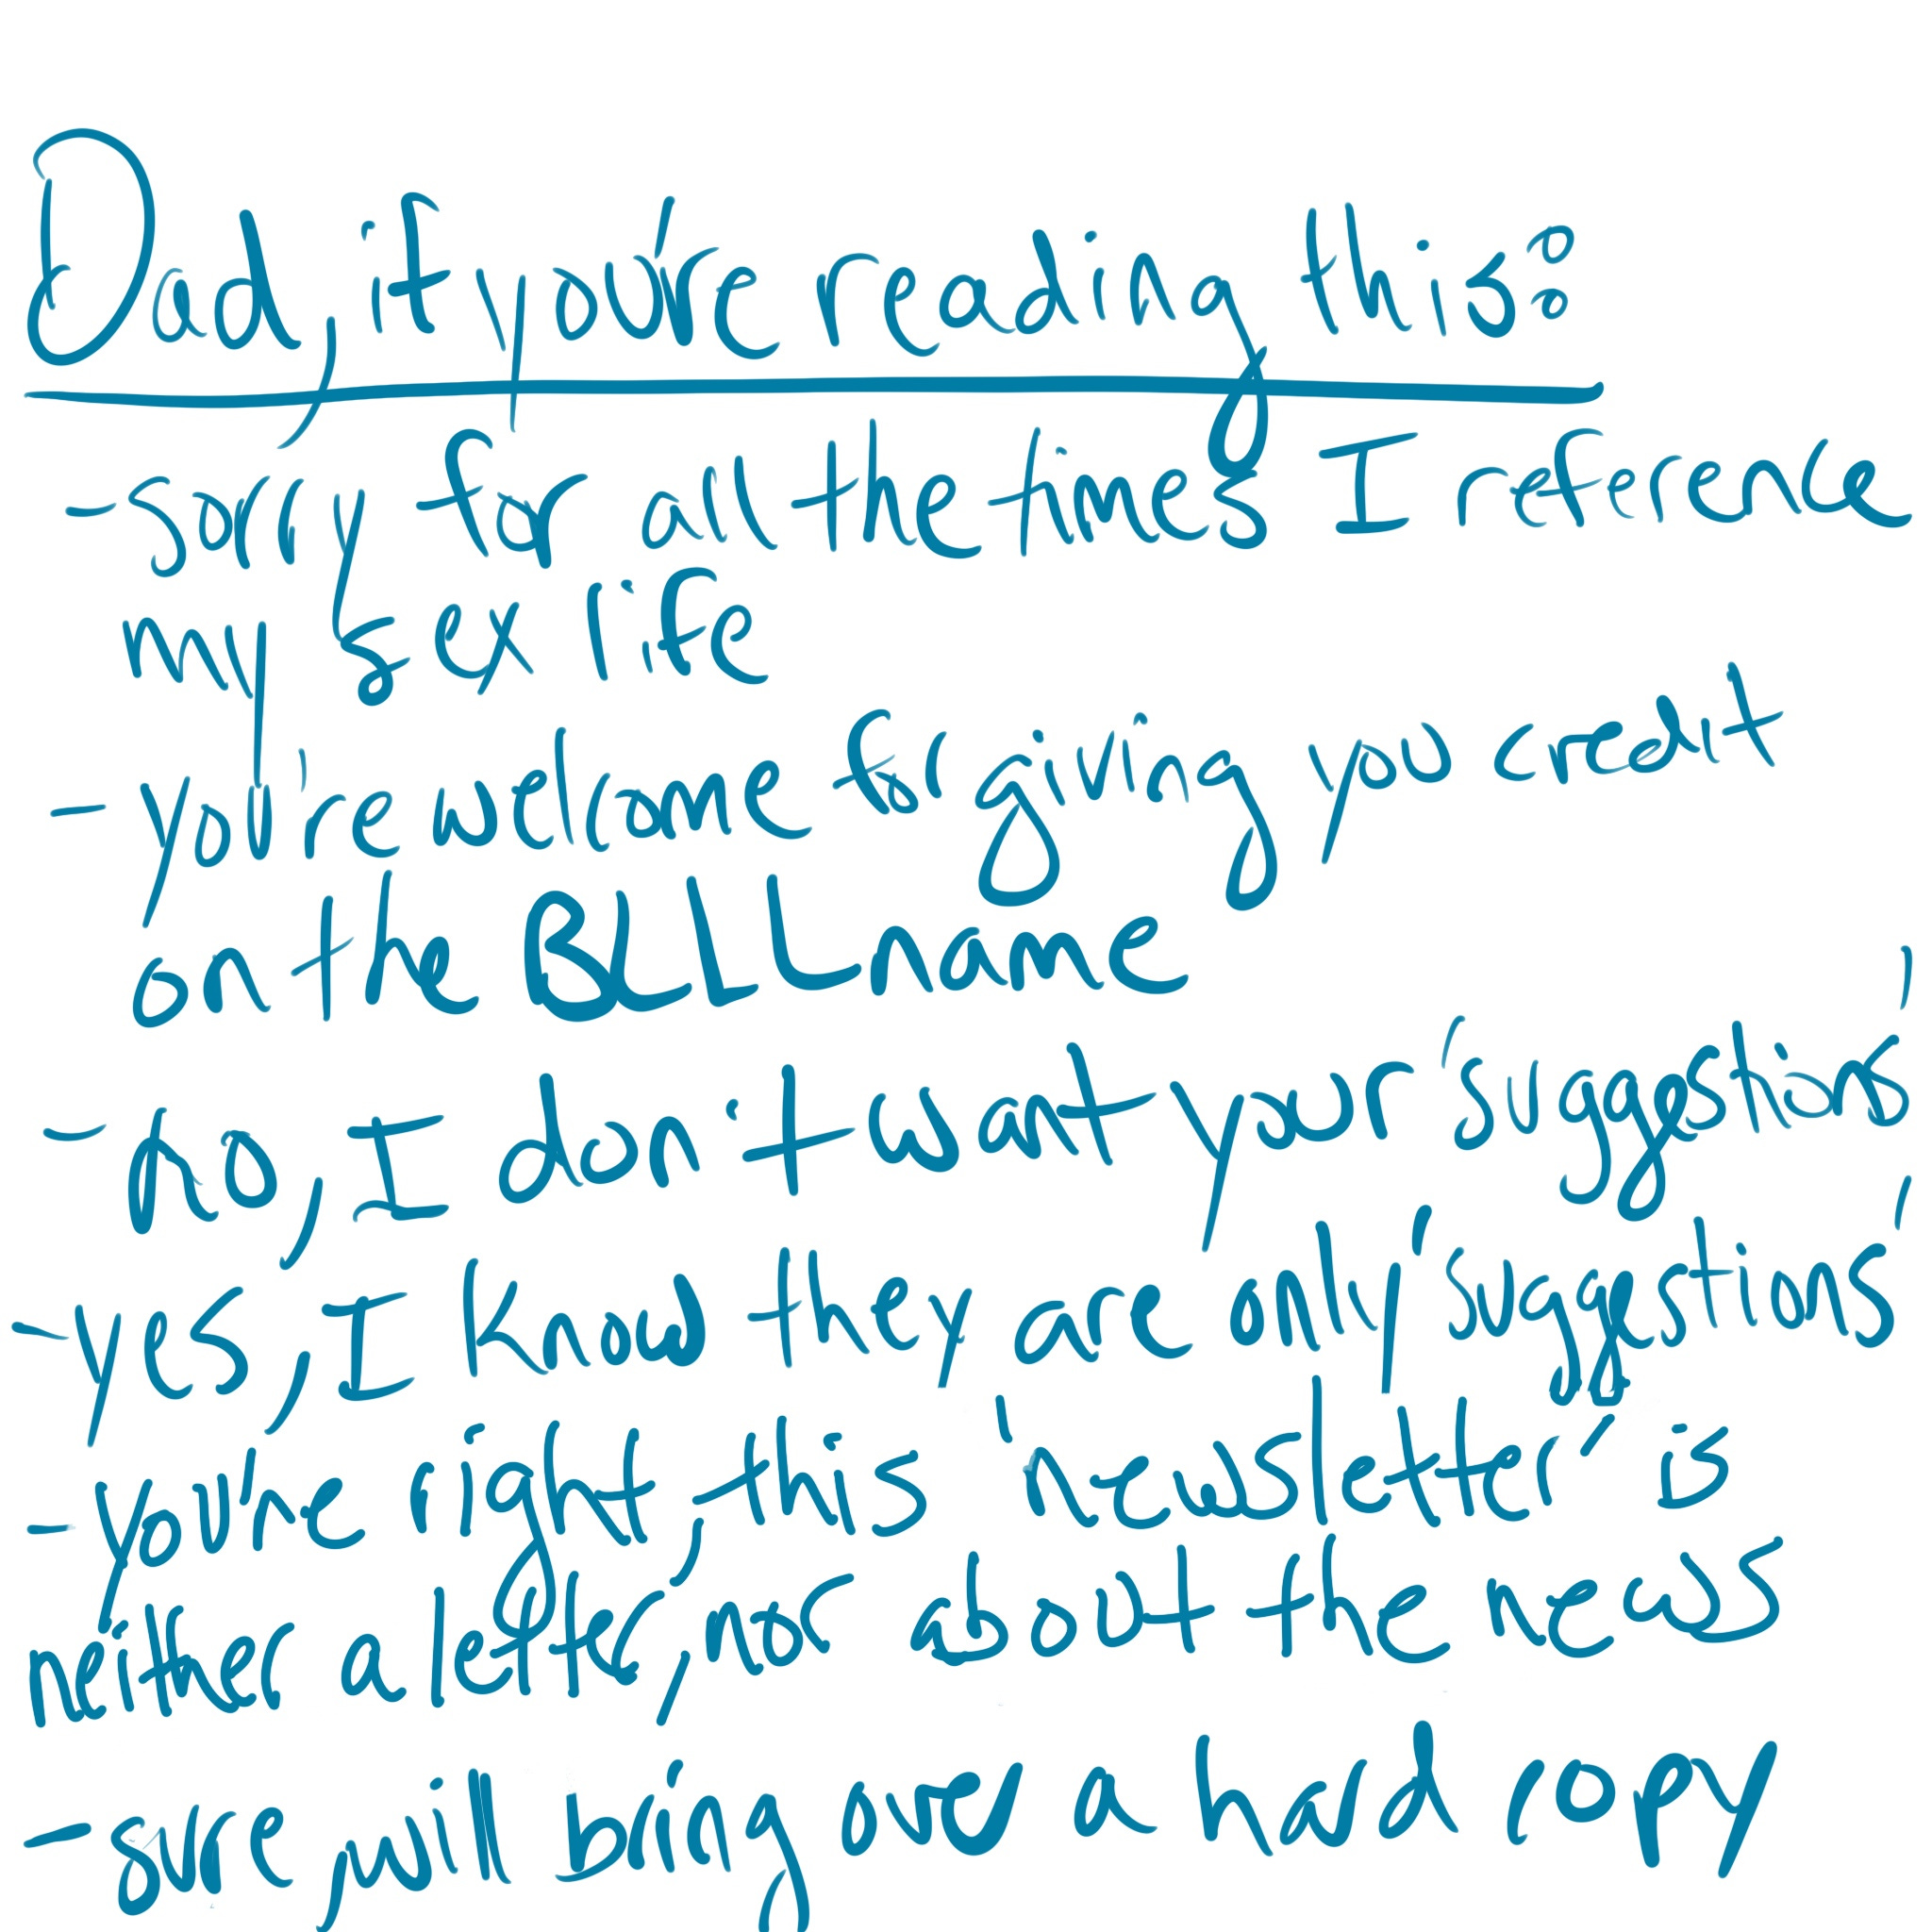 Dad, if you're reading this:
- sorry for all the times I reference
my sex life
- you're welcome for giving you credit
on the BLLL name
- no, I don't want your 'suggestions'
- yes, I know they are only 'suggestions'
- you're right, this 'newsletter' is
neither a letter, nor about the news
- sure, will bring over a hard copy